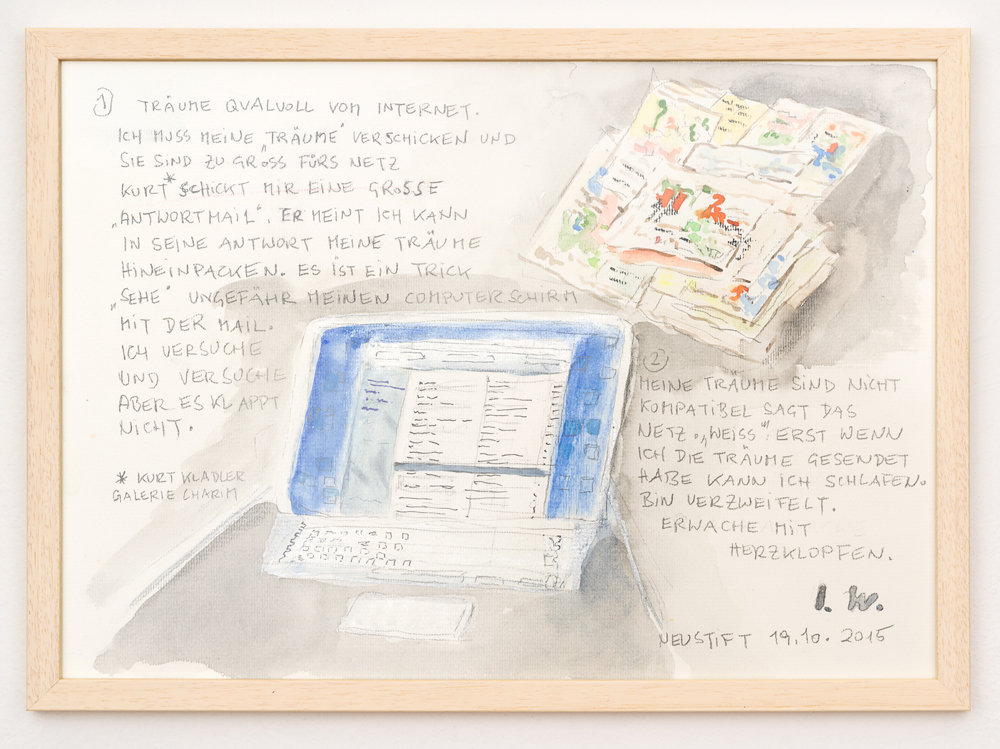 1 TRÄUME QUALVOLL VOM INTERNET.
ICH MUSS MEINE „TRÄUME“ VERSCHICKEN UND
SIE SIND ZU GROSS FÜRS NETZ
KURT* SCHICKT MIR EINE GROSSE
„ANTWORTMAIL“. ER MEINT ICH KANN
IN SEINE ANTWORT MEINE TRÄUME
HINEINPACKEN. ES IST EIN TRICK
„SEHE“ UNGEFÄHR MEINEN COMPUTERSCHIRM
MIT DER MAIL.
ICH VERSUCHE
UND VERSUCHE
ABER ES KLAPPT
NICHT.
* KURT KLADLER
GALERIE CHARIM
2
MEINE TRÄUME SIND NICHT
KOMPATIBEL SAGT DAS
NETZ. „WEISS“ ERST WENN
ICH DIE TRÄUME GESENDET
HABE KANN ICH SCHLAFEN.
BIN VERZWEIFELT.
ERWACHE MIT
HERZKLOPFEN.
I. W.
NEUSTIFT 19.10. 2015